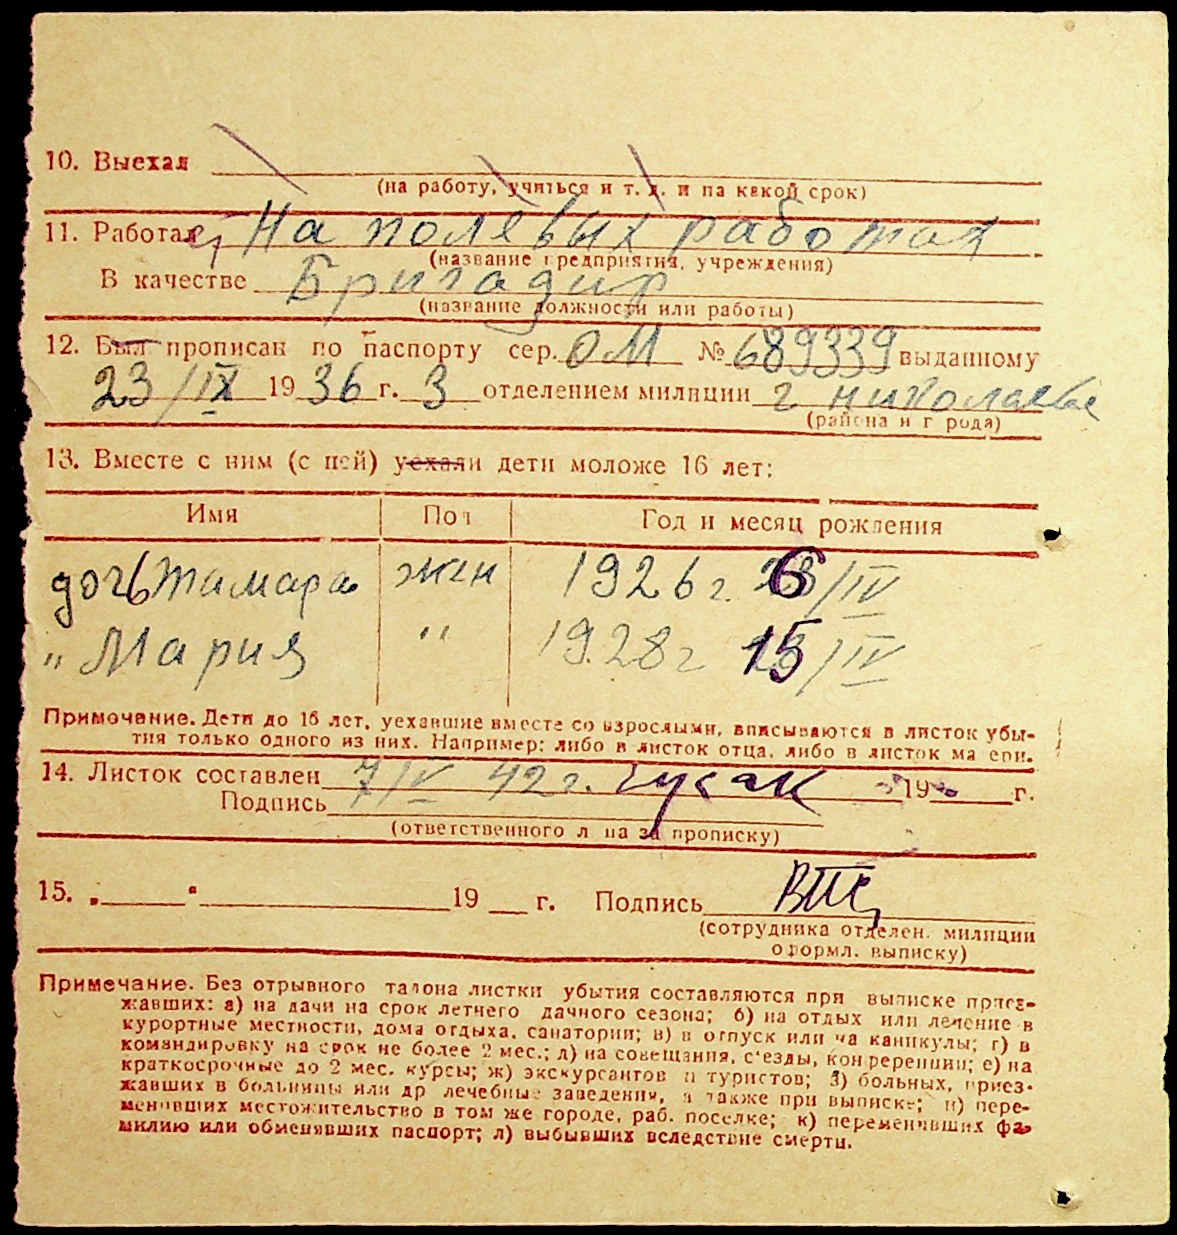 10. Выехал
(на работу, учиться и т. д. и на какой срок)
11. Работает На полевых работах
(название предприятия, учреждения)
В качестве Бригадир
(название должности или работы)
12. Был прописан по паспорту сер. ОМ № 689339 выданному
23/IX 1936 г. 3 отделением милиции г Николаеве
(района и города)
13. Вместе с ним (с ней) уехали дети моложе 16 лет:
Имя Пол Год и месяц рождения
дочь Тамара жен 1926 г. 6/IV
" Мария " 1928 г 15/IV
Примечание. Дети до 16 лет, уехавшие вместе со взрослыми, вписываются в листок убы-
тия только одного из них. Например: либо в листок отца, либо в листок матери.
14. Листок составлен 7/IV 42 г. Гусак 19 г.
Подпись
(ответственного лица за прописку)
15. „ “ 19 г. Подпись
(сотрудника отделен. милиции
оформл. выписку)
Примечание. Без отрывного талона листки убытия составляются при выписке приез-
жавших: а) на дачи на срок летнего дачного сезона; б) на отдых или лечение в
курортные местности, дома отдыха, санатории; в) в отпуск или на каникулы; г) в
командировку на срок не более 2 мес.; д) на совещания, с'езды, конференции; е) на
краткосрочные до 2 мес. курсы; ж) экскурсантов и туристов; з) больных, приез-
жавших в больницы или др лечебные заведения, а также при выписке; и) пере-
менивших местожительство в том же городе, раб. поселке; к) переменивших фа-
милию или обменявших паспорт; л) выбывших вследствие смерти.